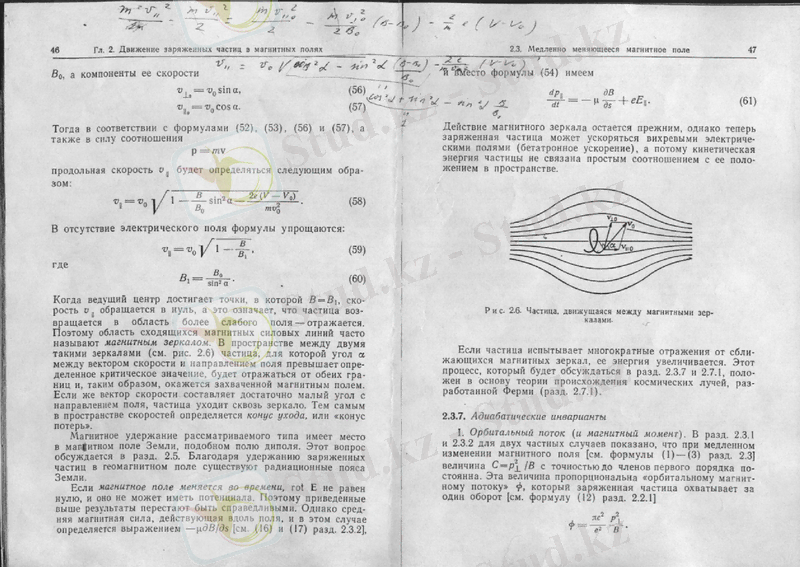 46 Гл. 2. Движение заряженных частиц в магнитных полях
B₀, а компоненты ее скорости
v⊥₀ = v₀ sin α, (56)
v∥₀ = v₀ cos α. (57)
Тогда в соответствии с формулами (52), (53), (56) и (57), а
также в силу соотношения
p = mv
продольная скорость v∥ будет определяться следующим обра-
зом:
v∥ = v₀ √(1 − B/B₀ sin² α − 2e(V − V₀)/mv₀²). (58)
В отсутствие электрического поля формулы упрощаются:
v∥ = v₀ √(1 − B/B₁), (59)
где
B₁ = B₀/sin² α. (60)
Когда ведущий центр достигает точки, в которой B = B₁, ско-
рость v∥ обращается в нуль, а это означает, что частица воз-
вращается в область более слабого поля — отражается.
Поэтому область сходящихся магнитных силовых линий часто
называют магнитным зеркалом. В пространстве между двумя
такими зеркалами (см. рис. 2.6) частица, для которой угол α
между вектором скорости и направлением поля превышает опре-
деленное критическое значение, будет отражаться от обеих гра-
ниц и, таким образом, окажется захваченной магнитным полем.
Если же вектор скорости составляет достаточно малый угол с
направлением поля, частица уходит сквозь зеркало. Тем самым
в пространстве скоростей определяется конус ухода, или «конус
потерь».
Магнитное удержание рассматриваемого типа имеет место
в магнитном поле Земли, подобном полю диполя. Этот вопрос
обсуждается в разд. 2.5. Благодаря удержанию заряженных
частиц в геомагнитном поле существуют радиационные пояса
Земли.
Если магнитное поле меняется во времени, rot E не равен
нулю, и оно не может иметь потенциала. Поэтому приведенные
выше результаты перестают быть справедливыми. Однако сред-
няя магнитная сила, действующая вдоль поля, и в этом случае
определяется выражением −μ∂B/∂s [см. (16) и (17) разд. 2.3.2],
2.3. Медленно меняющееся магнитное поле 47
и вместо формулы (54) имеем
dp∥/dt = −μ ∂B/∂s + eE∥. (61)
Действие магнитного зеркала остается прежним, однако теперь
заряженная частица может ускоряться вихревыми электриче-
скими полями (бетатронное ускорение), а потому кинетическая
энергия частицы не связана простым соотношением с ее поло-
жением в пространстве.
v⊥0 v₀
α v∥0
Рис. 2.6. Частица, движущаяся между магнитными зер-
калами.
Если частица испытывает многократные отражения от сбли-
жающихся магнитных зеркал, ее энергия увеличивается. Этот
процесс, который будет обсуждаться в разд. 2.3.7 и 2.7.1, поло-
жен в основу теории происхождения космических лучей, раз-
работанной Ферми (разд. 2.7.1).
2.3.7. Адиабатические инварианты
1. Орбитальный поток (и магнитный момент). В разд. 2.3.1
и 2.3.2 для двух частных случаев показано, что при медленном
изменении магнитного поля [см. формулы (1)—(3) разд. 2.3]
величина C = p⊥²/B с точностью до членов первого порядка по-
стоянна. Эта величина пропорциональна «орбитальному магнит-
ному потоку» ϕ, который заряженная частица охватывает за
один оборот [см. формулу (12) разд. 2.2.1]
ϕ = πc²/e² p⊥²/B.